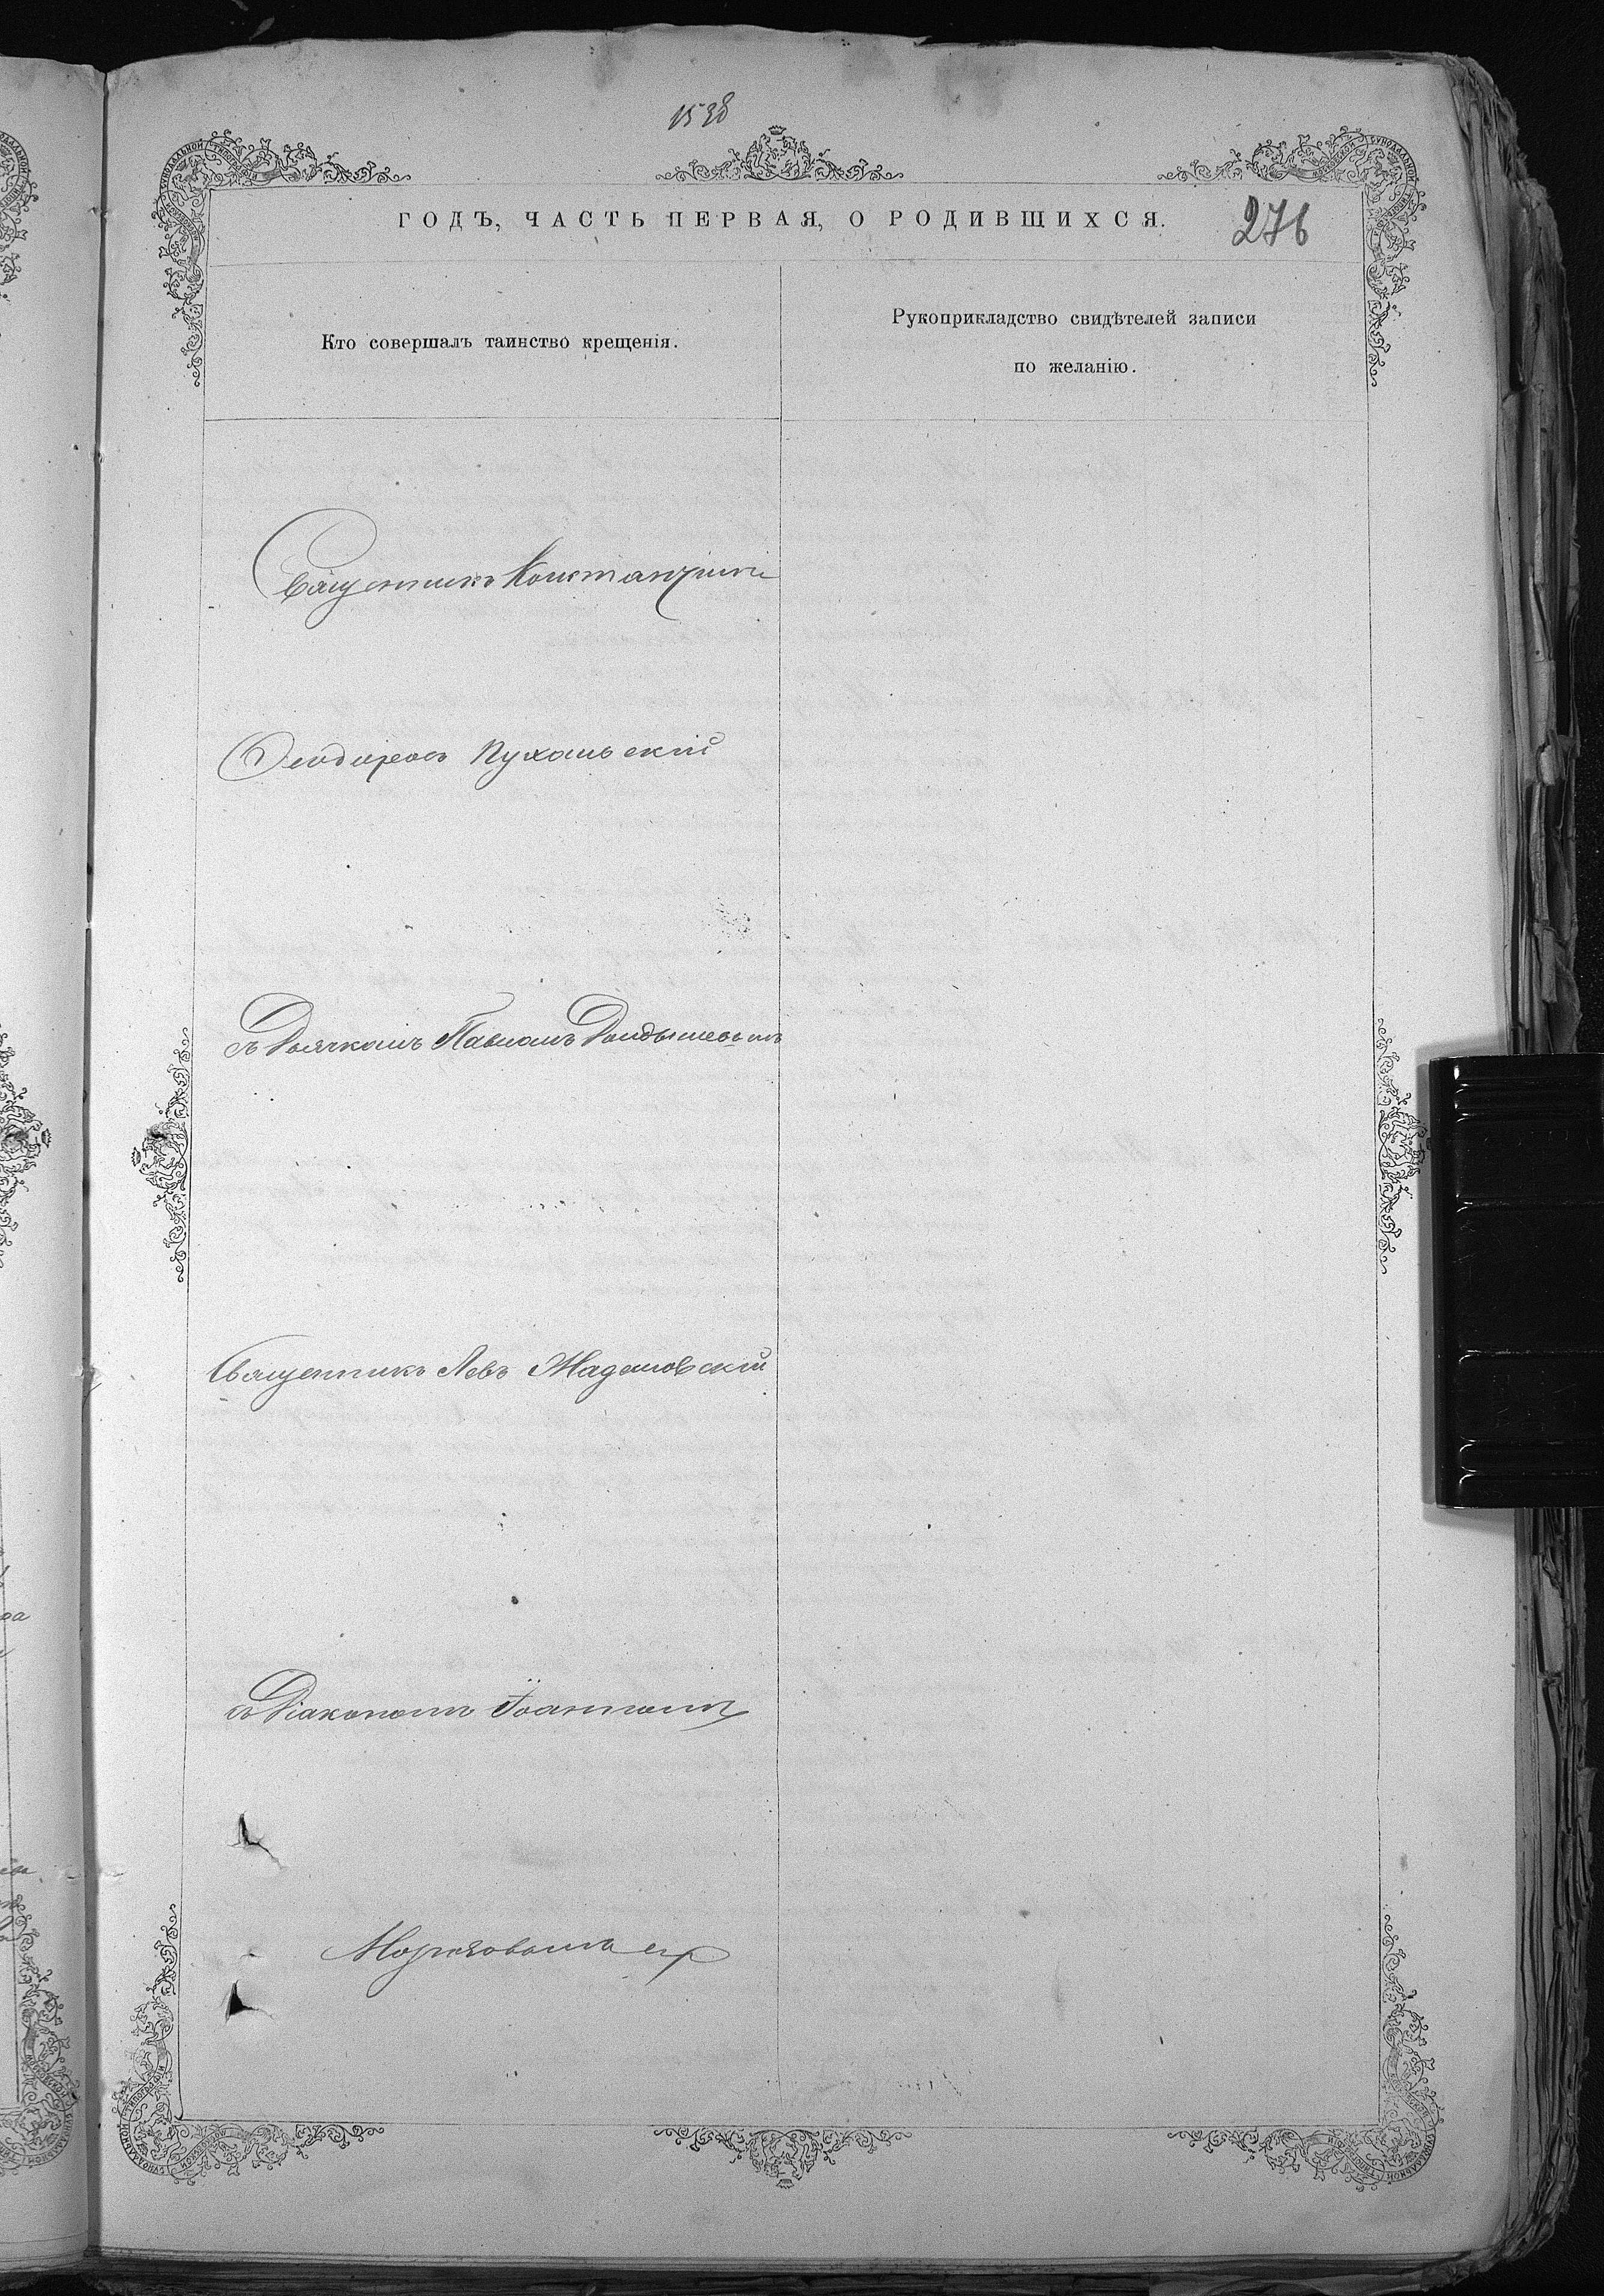 1538
ГОДЪ, ЧАСТЬ ПЕРВАЯ, О РОДИВШИХСЯ.
276
Кто совершалъ таинство крещенія.
Рукоприкладство свидѣтелей записи
по желанію.
Священникъ Константинъ
Ѳеодоровъ Пухальскій
съ Дьячкомъ Павломъ
Священникъ Левъ
съ Діакономъ Іоанномъ